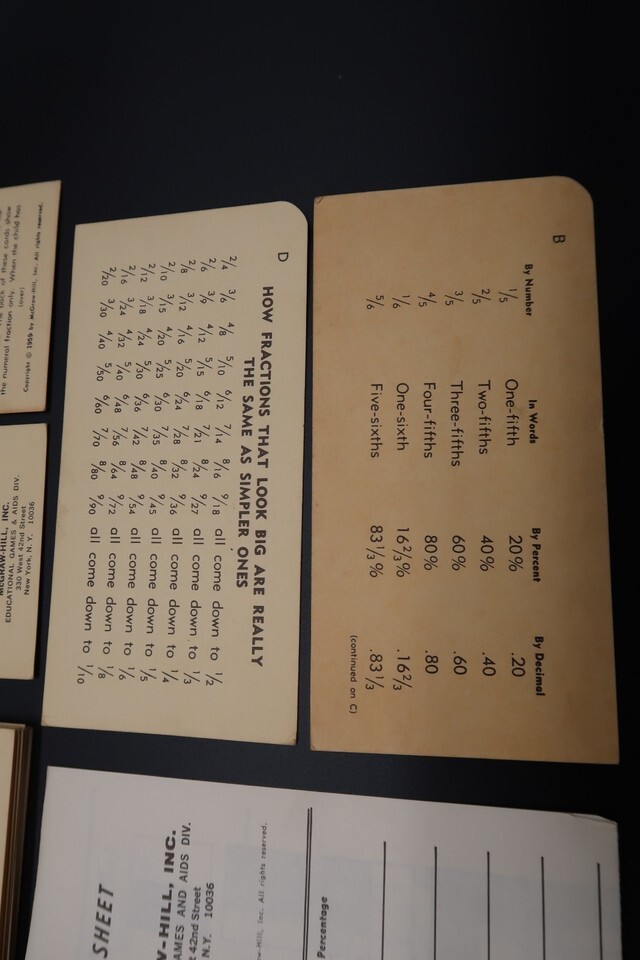 B
By Number In Words By Percent By Decimal
1/5 One-fifth 20% .20
2/5 Two-fifths 40% .40
3/5 Three-fifths 60% .60
4/5 Four-fifths 80% .80
1/6 One-sixth 16 2/3% .16 2/3
5/6 Five-sixths 83 1/3% .83 1/3
(continued on C)
D
HOW FRACTIONS THAT LOOK BIG ARE REALLY
THE SAME AS SIMPLER ONES
2/4 3/6 4/8 5/10 6/12 7/14 8/16 9/18 all come down to 1/2
2/6 3/9 4/12 5/15 6/18 7/21 8/24 9/27 all come down to 1/3
2/8 3/12 4/16 5/20 6/24 7/28 8/32 9/36 all come down to 1/4
2/10 3/15 4/20 5/25 6/30 7/35 8/40 9/45 all come down to 1/5
2/12 3/18 4/24 5/30 6/36 7/42 8/48 9/54 all come down to 1/6
2/16 3/24 4/32 5/40 6/48 7/56 8/64 9/72 all come down to 1/8
2/20 3/30 4/40 5/50 6/60 7/70 8/80 9/90 all come down to 1/10
back of these cards show
the numeral fraction only. When the child has
(over)
Copyright © 1959 by McGraw-Hill, Inc. All rights reserved.
McGRAW-HILL, INC.
EDUCATIONAL GAMES & AIDS DIV.
330 West 42nd Street
New York, N. Y. 10036
SHEET
W-HILL, INC.
AMES AND AIDS DIV.
42nd Street
N.Y. 10036
w-Hill, Inc. All rights reserved.
Percentage